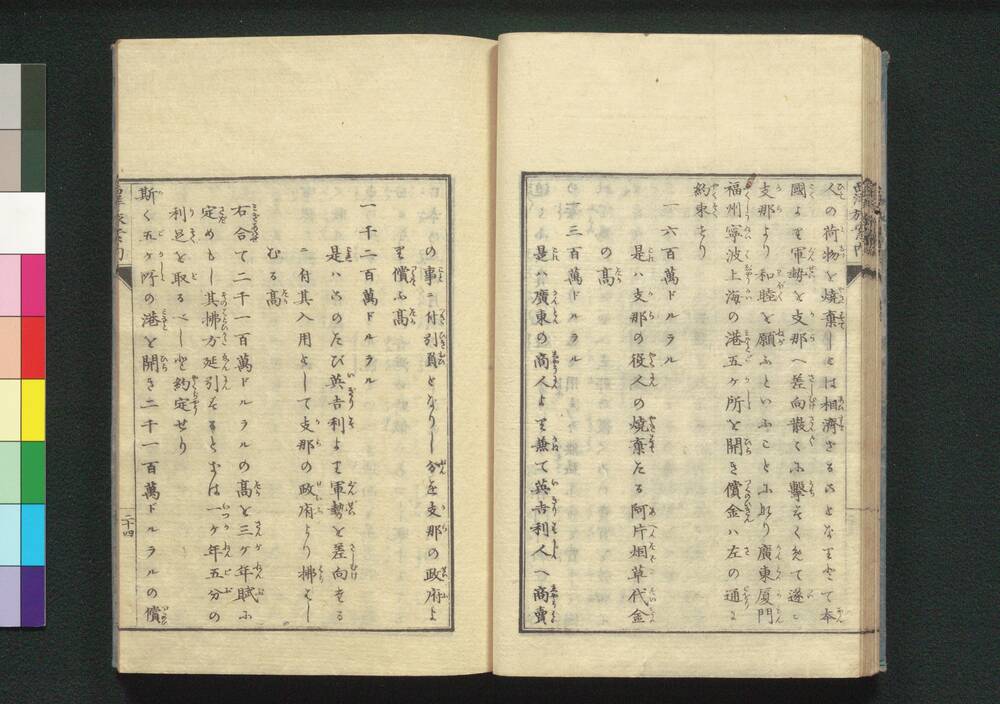 人の荷物を焼棄しとは相済さることなりとて本
國より軍勢を支那へ差向散くに擊ちくだきて遂に
支那より和睦を願ふといふことに成り廣東厦門
福州寧波上海の港五ケ所を開き償金ハ左の通り
約束せり
一 六百萬ドルラル
是ハ支那の役人の焼棄たる阿片烟草代金
の高
一 三百萬ドルラル
是ハ廣東の商人より兼て英吉利人へ商賣
の事ニ付引負となりし分を支那の政府よ
り償ふ高
一 千二百萬ドルラル
是ハこのたび英吉利より軍勢を差向たる
ニ付其入用として支那の政府より拂はし
むる高
右合て二千一百萬ドルラルの高を三ケ年賦に
定めもし其拂方延引するときは一ケ年五分の
利足を取るべしと約定せり
斯く五ケ所の港を開き二千一百萬ドルラルの償
二十四